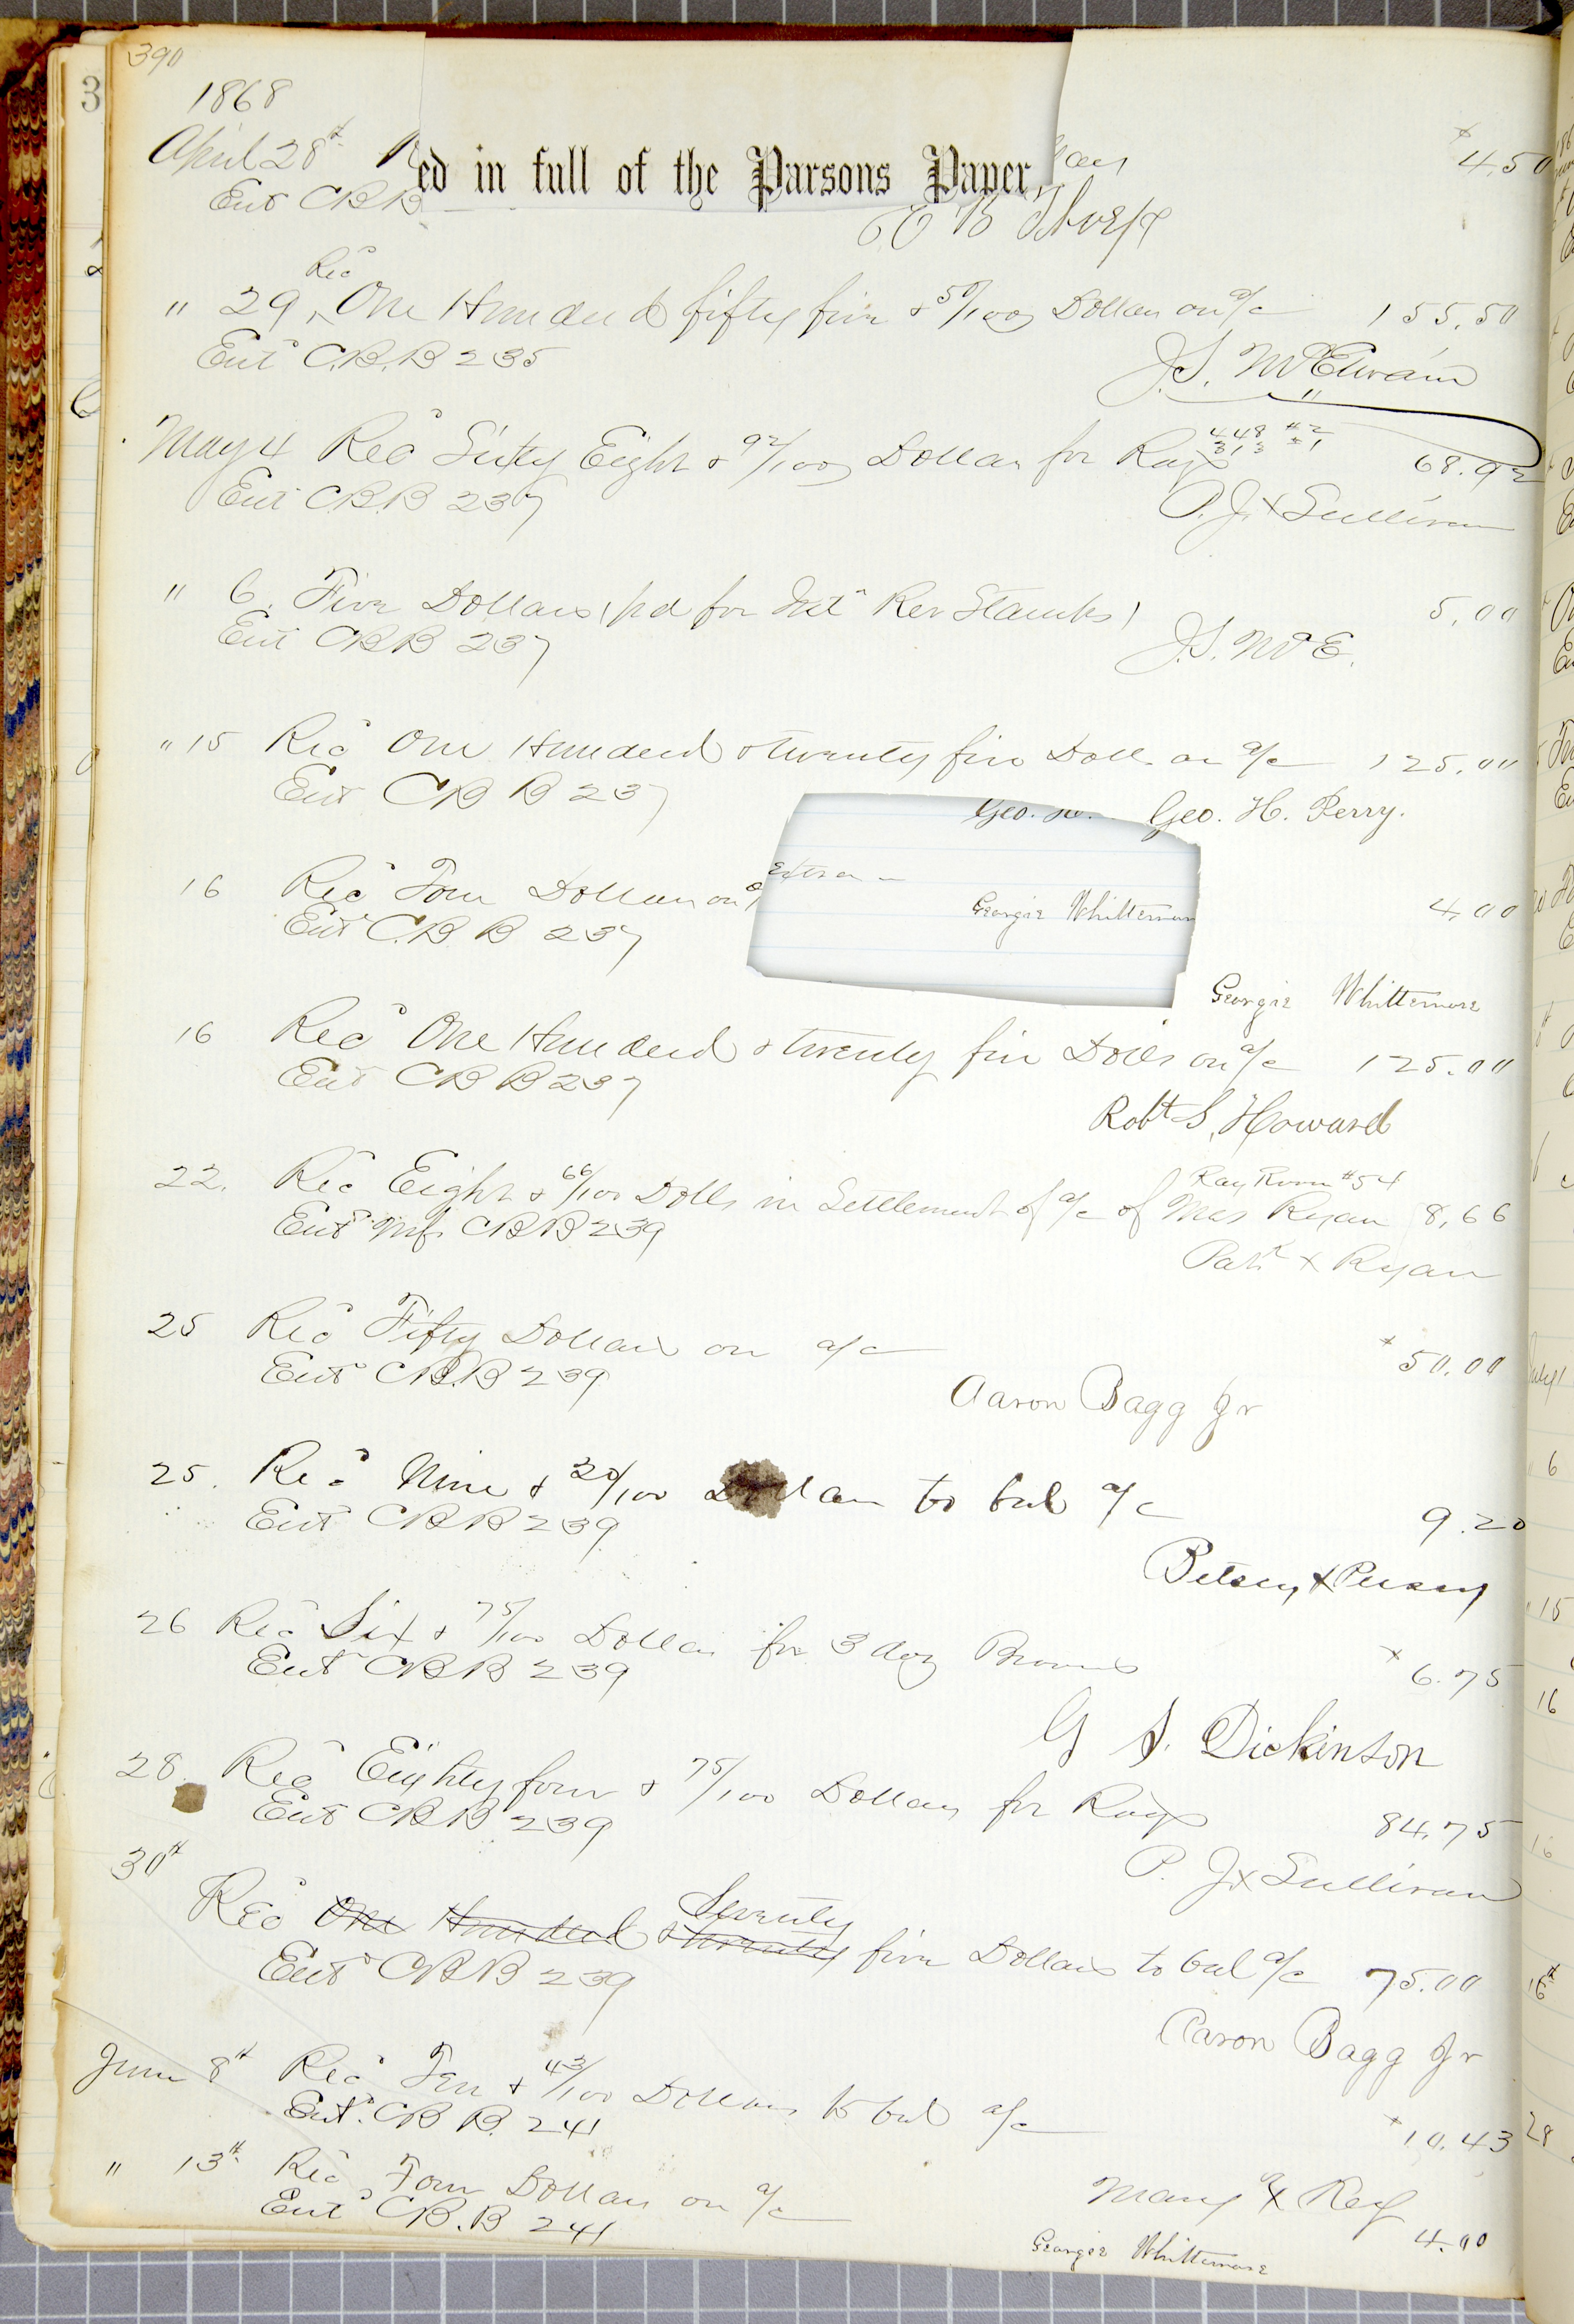 390
1868
April 28th
ed in full of the Parsons Paper
4.50
Ent CBB
B Thorp
Rec
" 29 One Hundred fifty five & 50/100 Dollars on a/c 155.50
Ent C.B.B 235
J.S. McElwain
May 4 Rec Sixty Eight & 92/100 Dollars for Rags 448 #2 68.92
313 #1
Ent C.B.B 237
P. J. x Sullivan
" 6. Five Dollars (pd for Int Rev Stamps) 5.00
Ent CBB 237
J.S. McE.
" 15 Rec One Hundred & twenty five Doll on a/c 125.00
Ent CB B 237
Geo. H. Geo. H. Perry.
16 Rec Four Dollars on 4.00
Georgie Whittemore
Ent C.B.B 237
Georgie Whittemore
16 Rec One Hundred & twenty five Dolls on a/c 125.00
Ent CB B 237
Robt S. Howard
Rag Room #54
22. Rec Eight & 66/100 Dolls in Settlement of a/c of Mrs Ryan 8.66
Ent CBB 239
Patk x Ryan
25 Rec Fifty Dollars on a/c x 50.00
Ent C.B.B 239
Aaron Bagg Jr
25. Rec Nine & 20/100 Dollars to bal a/c 9.20
Ent CBB 239
Betsey x
26 Rec Six & 75/100 Dollars for 3 doz Brooms x 6.75
Ent CBB 239
G S. Dickinson
28. Rec Eighty four & 75/100 Dollars for Rags 84.75
Ent CBB 239
P. J x Sullivan
30th
Seventy
Rec One Hundred & twenty five Dollars to bal a/c 75.00
Ent CBB 239
Aaron Bagg Jr
June 8th Rec Ten & 43/100 Dollars to bal a/c x 10.43
Ent. CB B. 241
Mary x
" 13th Rec Four Dollars on a/c 4.00
Ent CB.B 241
Georgie Whittemore